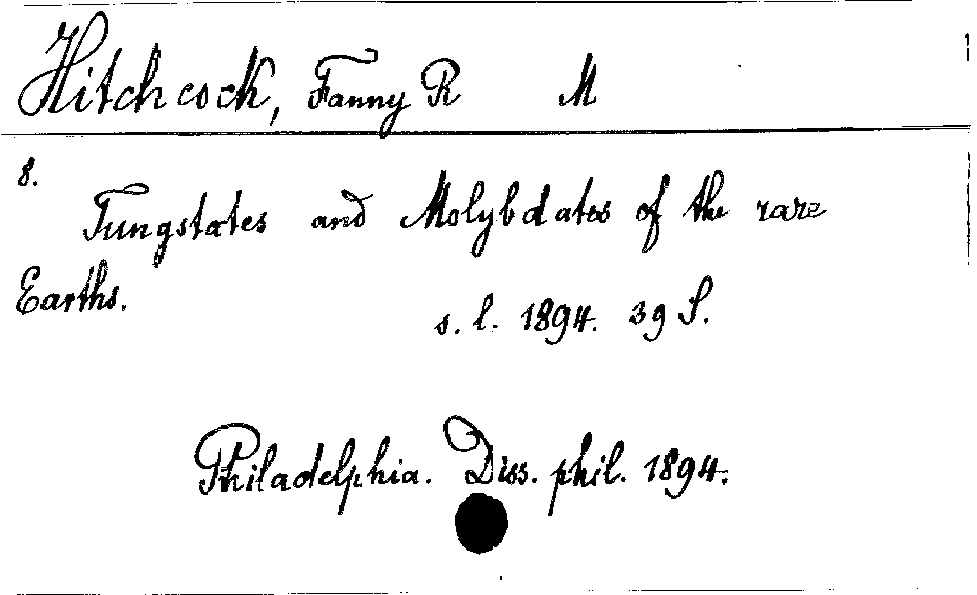 Hitchcock, Fanny R M
8.
Tungstates and Molybdates of the rare
Earths.
s. l. 1894. 39 S.
Philadelphia. Diss. phil. 1894.